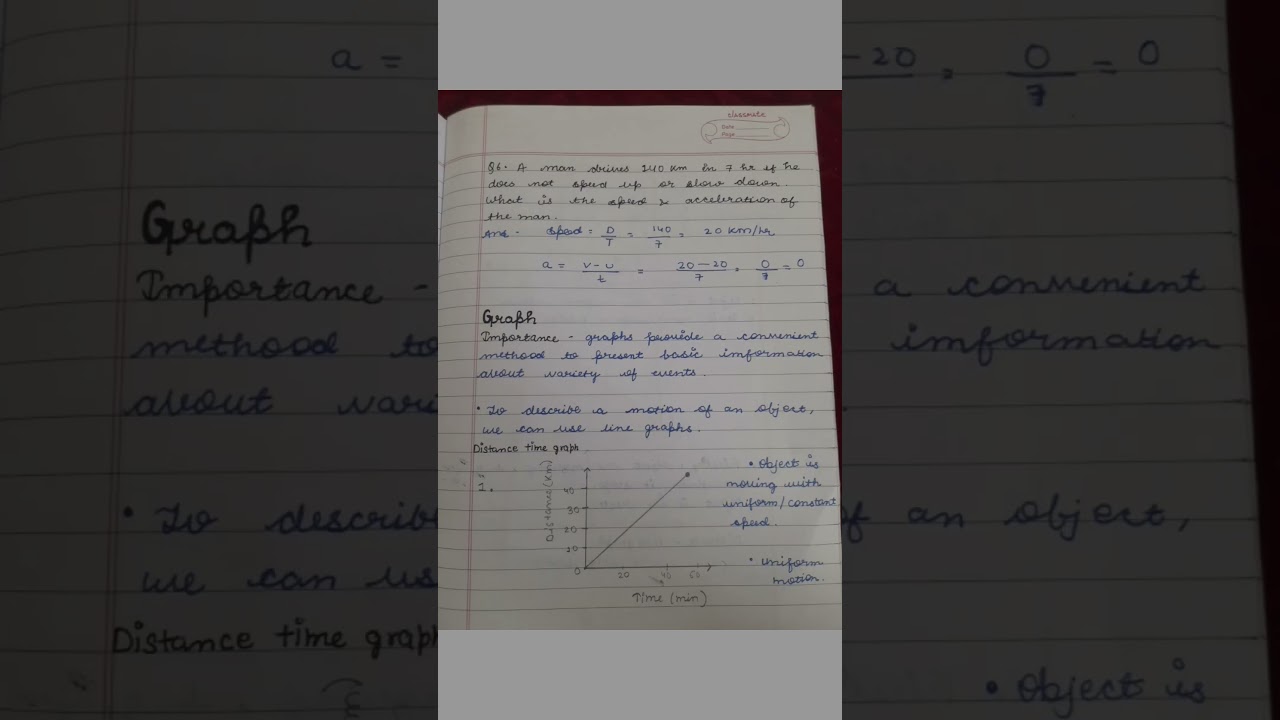 classmate
Date
Page
Q6. A man drives 140 km in 7 hr if he
does not speed up or slow down.
What is the speed & acceleration of
the man.
Ans - Speed = D/T = 140/7 = 20 km/hr
a = v-u/t = 20-20/7 = 0/7 = 0
Graph
Importance - graphs provide a convenient
methood to present basic imformation
about variety of events.
• To describe a motion of an object,
we can use line graphs.
Distance time graph
1.
Distance (km)
40
30
20
10
0
20
40
60
Time (min)
• Object is
moving with
uniform/constant
speed.
• uniform
motion.